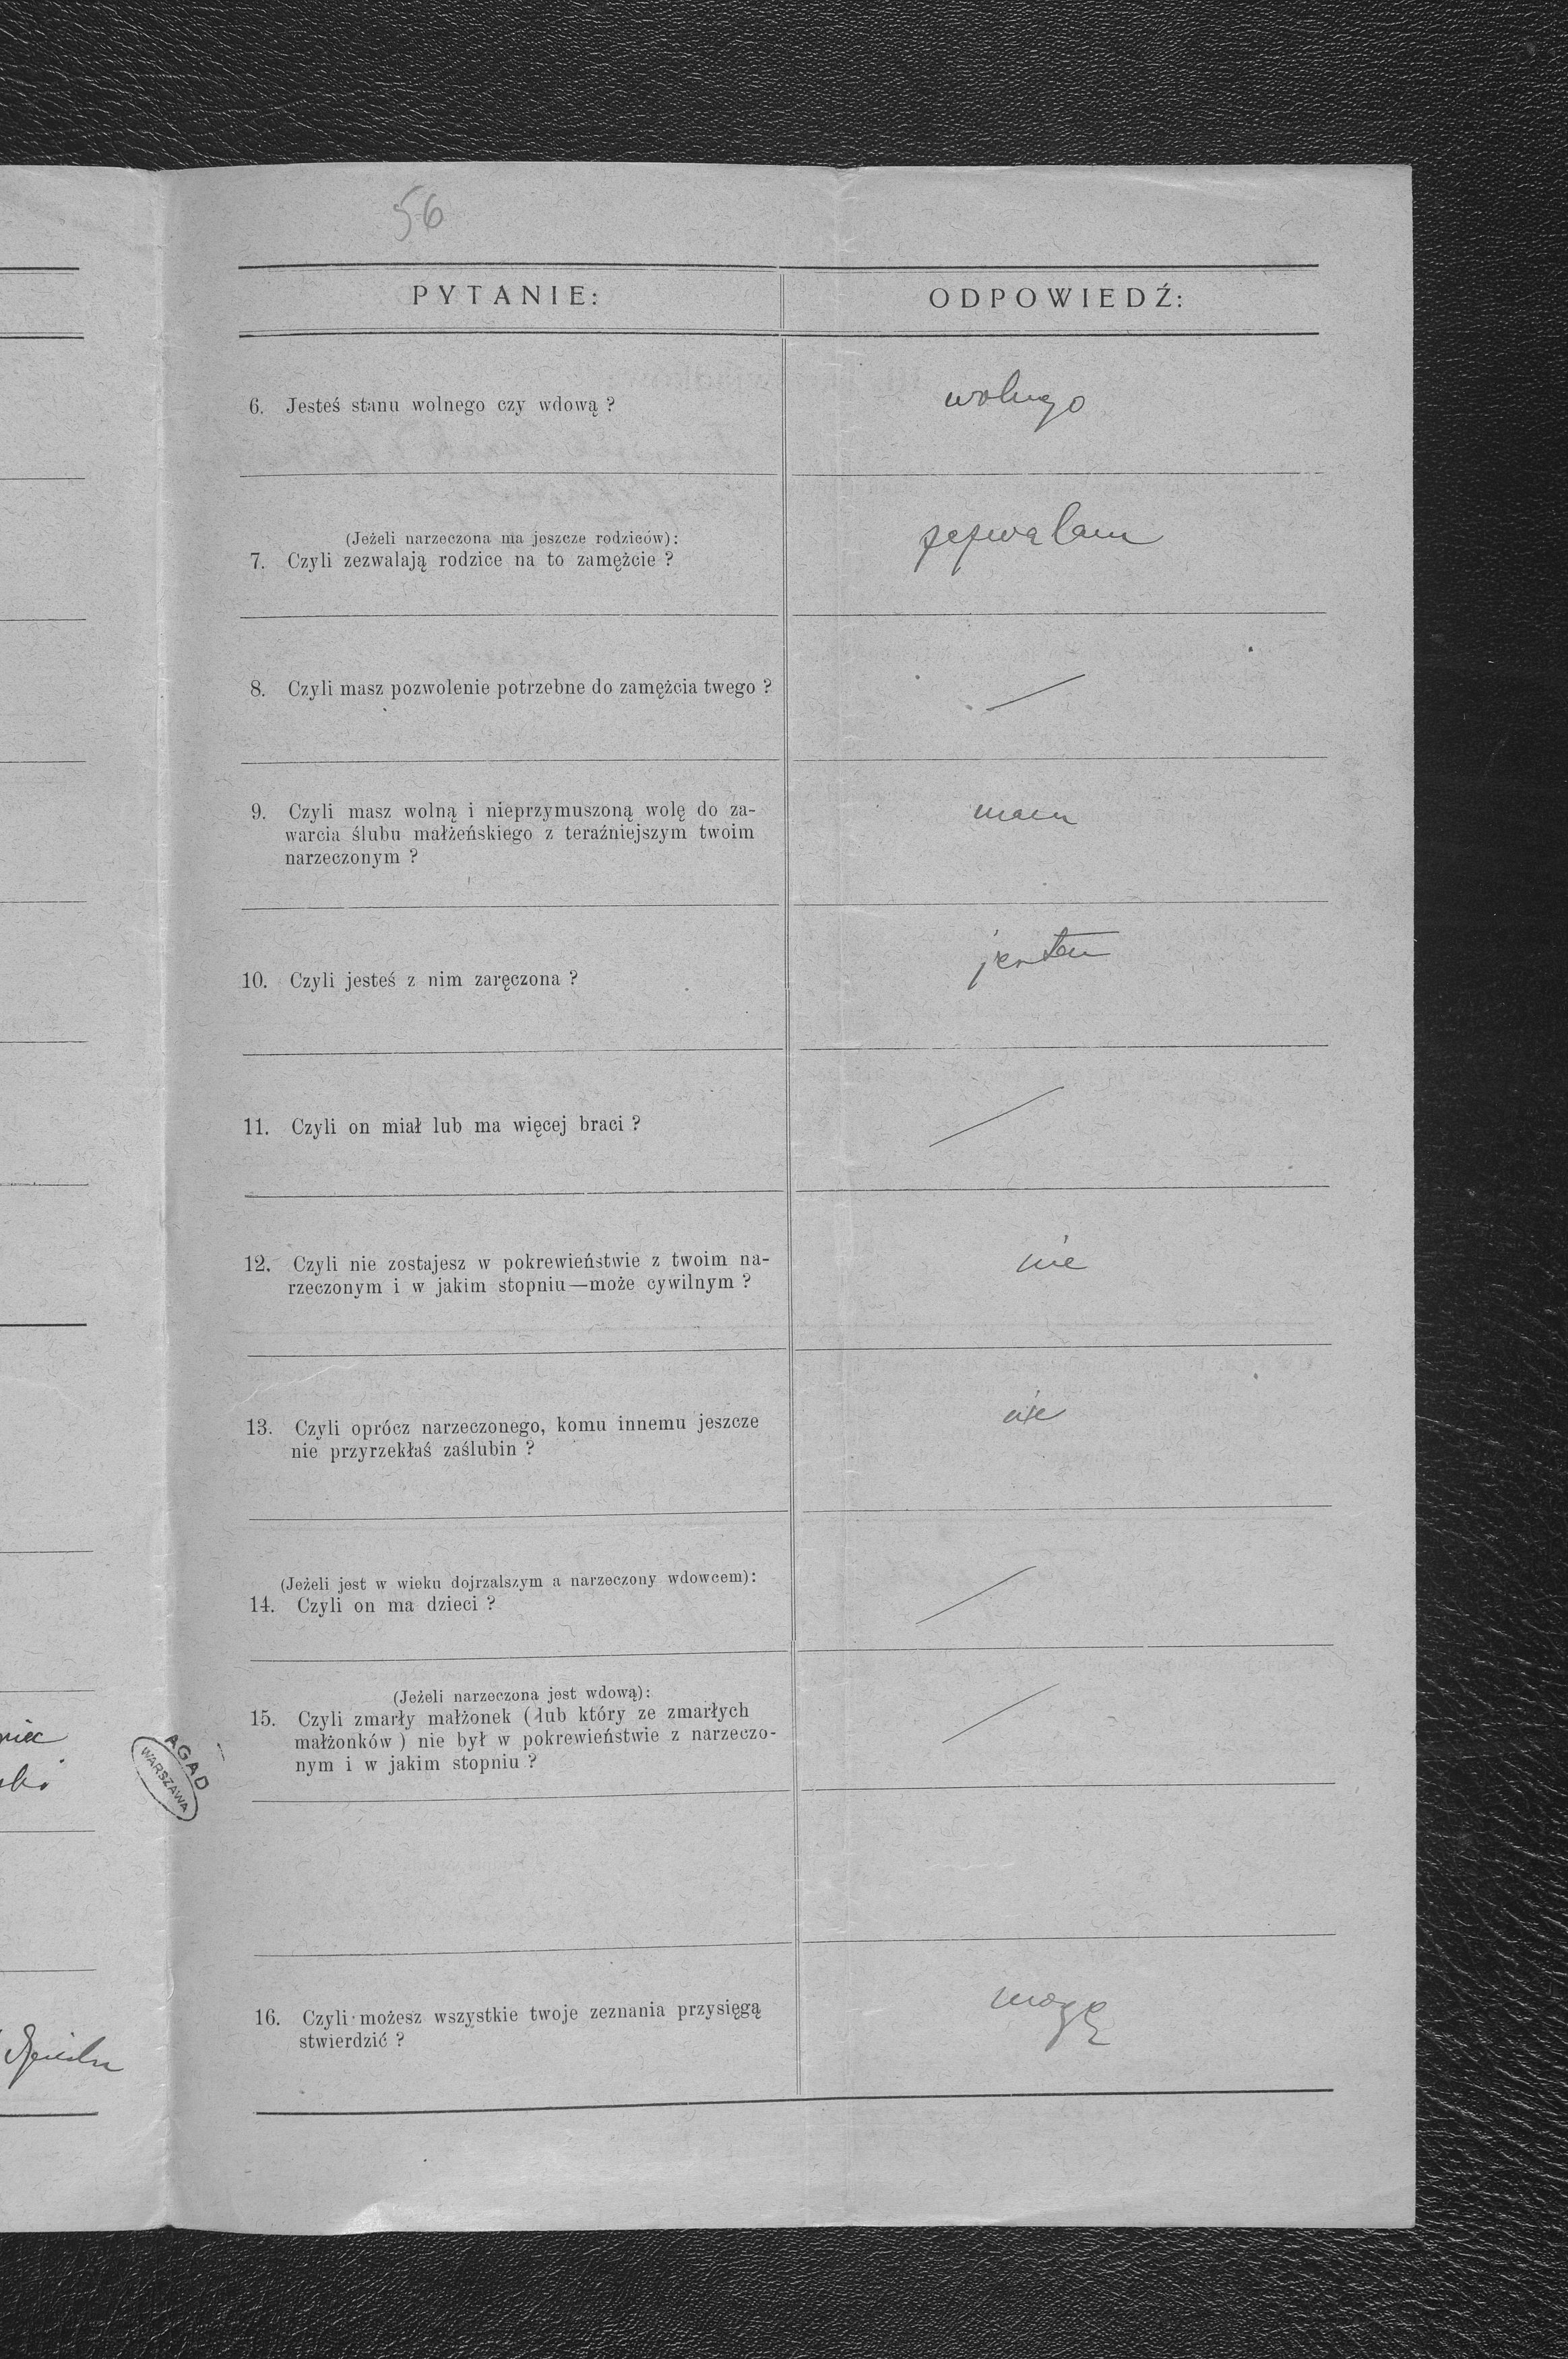 56
PYTANIE:
ODPOWIEDŹ:
6. Jesteś stanu wolnego czy wdową ?
wolnego
(Jeżeli narzeczona ma jeszcze rodziców):
7. Czyli zezwalają rodzice na to zamężcie ?
zezwalam
8. Czyli masz pozwolenie potrzebne do zamężcia twego ?
9. Czyli masz wolną i nieprzymuszoną wolę do za-
warcia ślubu małżeńskiego z teraźniejszym twoim
narzeczonym ?
mam
10. Czyli jesteś z nim zaręczona ?
jestem
11. Czyli on miał lub ma więcej braci ?
12. Czyli nie zostajesz w pokrewieństwie z twoim na-
rzeczonym i w jakim stopniu—może cywilnym ?
nie
13. Czyli oprócz narzeczonego, komu innemu jeszcze
nie przyrzekłaś zaślubin ?
nie
(Jeżeli jest w wieku dojrzalszym a narzeczony wdowcem):
14. Czyli on ma dzieci ?
(Jeżeli narzeczona jest wdową):
15. Czyli zmarły małżonek (lub który ze zmarłych
małżonków) nie był w pokrewieństwie z narzeczo-
nym i w jakim stopniu ?
AGAD
WARSZAWA
16. Czyli możesz wszystkie twoje zeznania przysięgą
stwierdzić ?
mogę